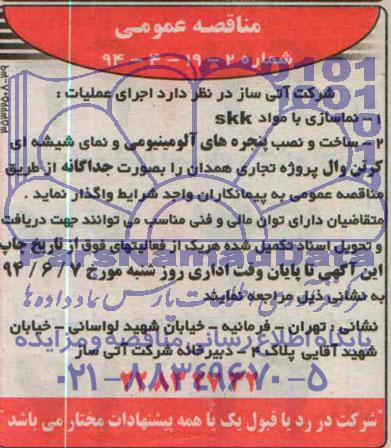 مناقصه عمومی
شماره ۲ - ۱۹ - ۴ - ۹۴
شرکت آتی ساز در نظر دارد اجرای عملیات :
۱- نماسازی با مواد skk
۲- ساخت و نصب پنجره های آلومینیومی و نمای شیشه ای
کرتن وال پروژه تجاری همدان را بصورت جداگانه از طریق
مناقصه عمومی به پیمانکاران واجد شرایط واگذار نماید .
متقاضیان دارای توان مالی و فنی مناسب می توانند جهت دریافت
و تحویل اسناد تکمیل شده هریک از فعالیتهای فوق از تاریخ چاپ
این آگهی تا پایان وقت اداری روز شنبه مورخ ۹۴/۶/۷
به نشانی ذیل مراجعه نمایند
نشانی : تهران - فرمانیه - خیابان شهید لواسانی - خیابان
شهید آقایی پلاک ۲ - دبیرخانه شرکت آتی ساز
شرکت در رد یا قبول یک یا همه پیشنهادات مختار می باشد
ParsNamadData
پایگاه اطلاع رسانی مناقصه و مزایده
۰۲۱-۸۸۳۴۹۶۷۰-۵